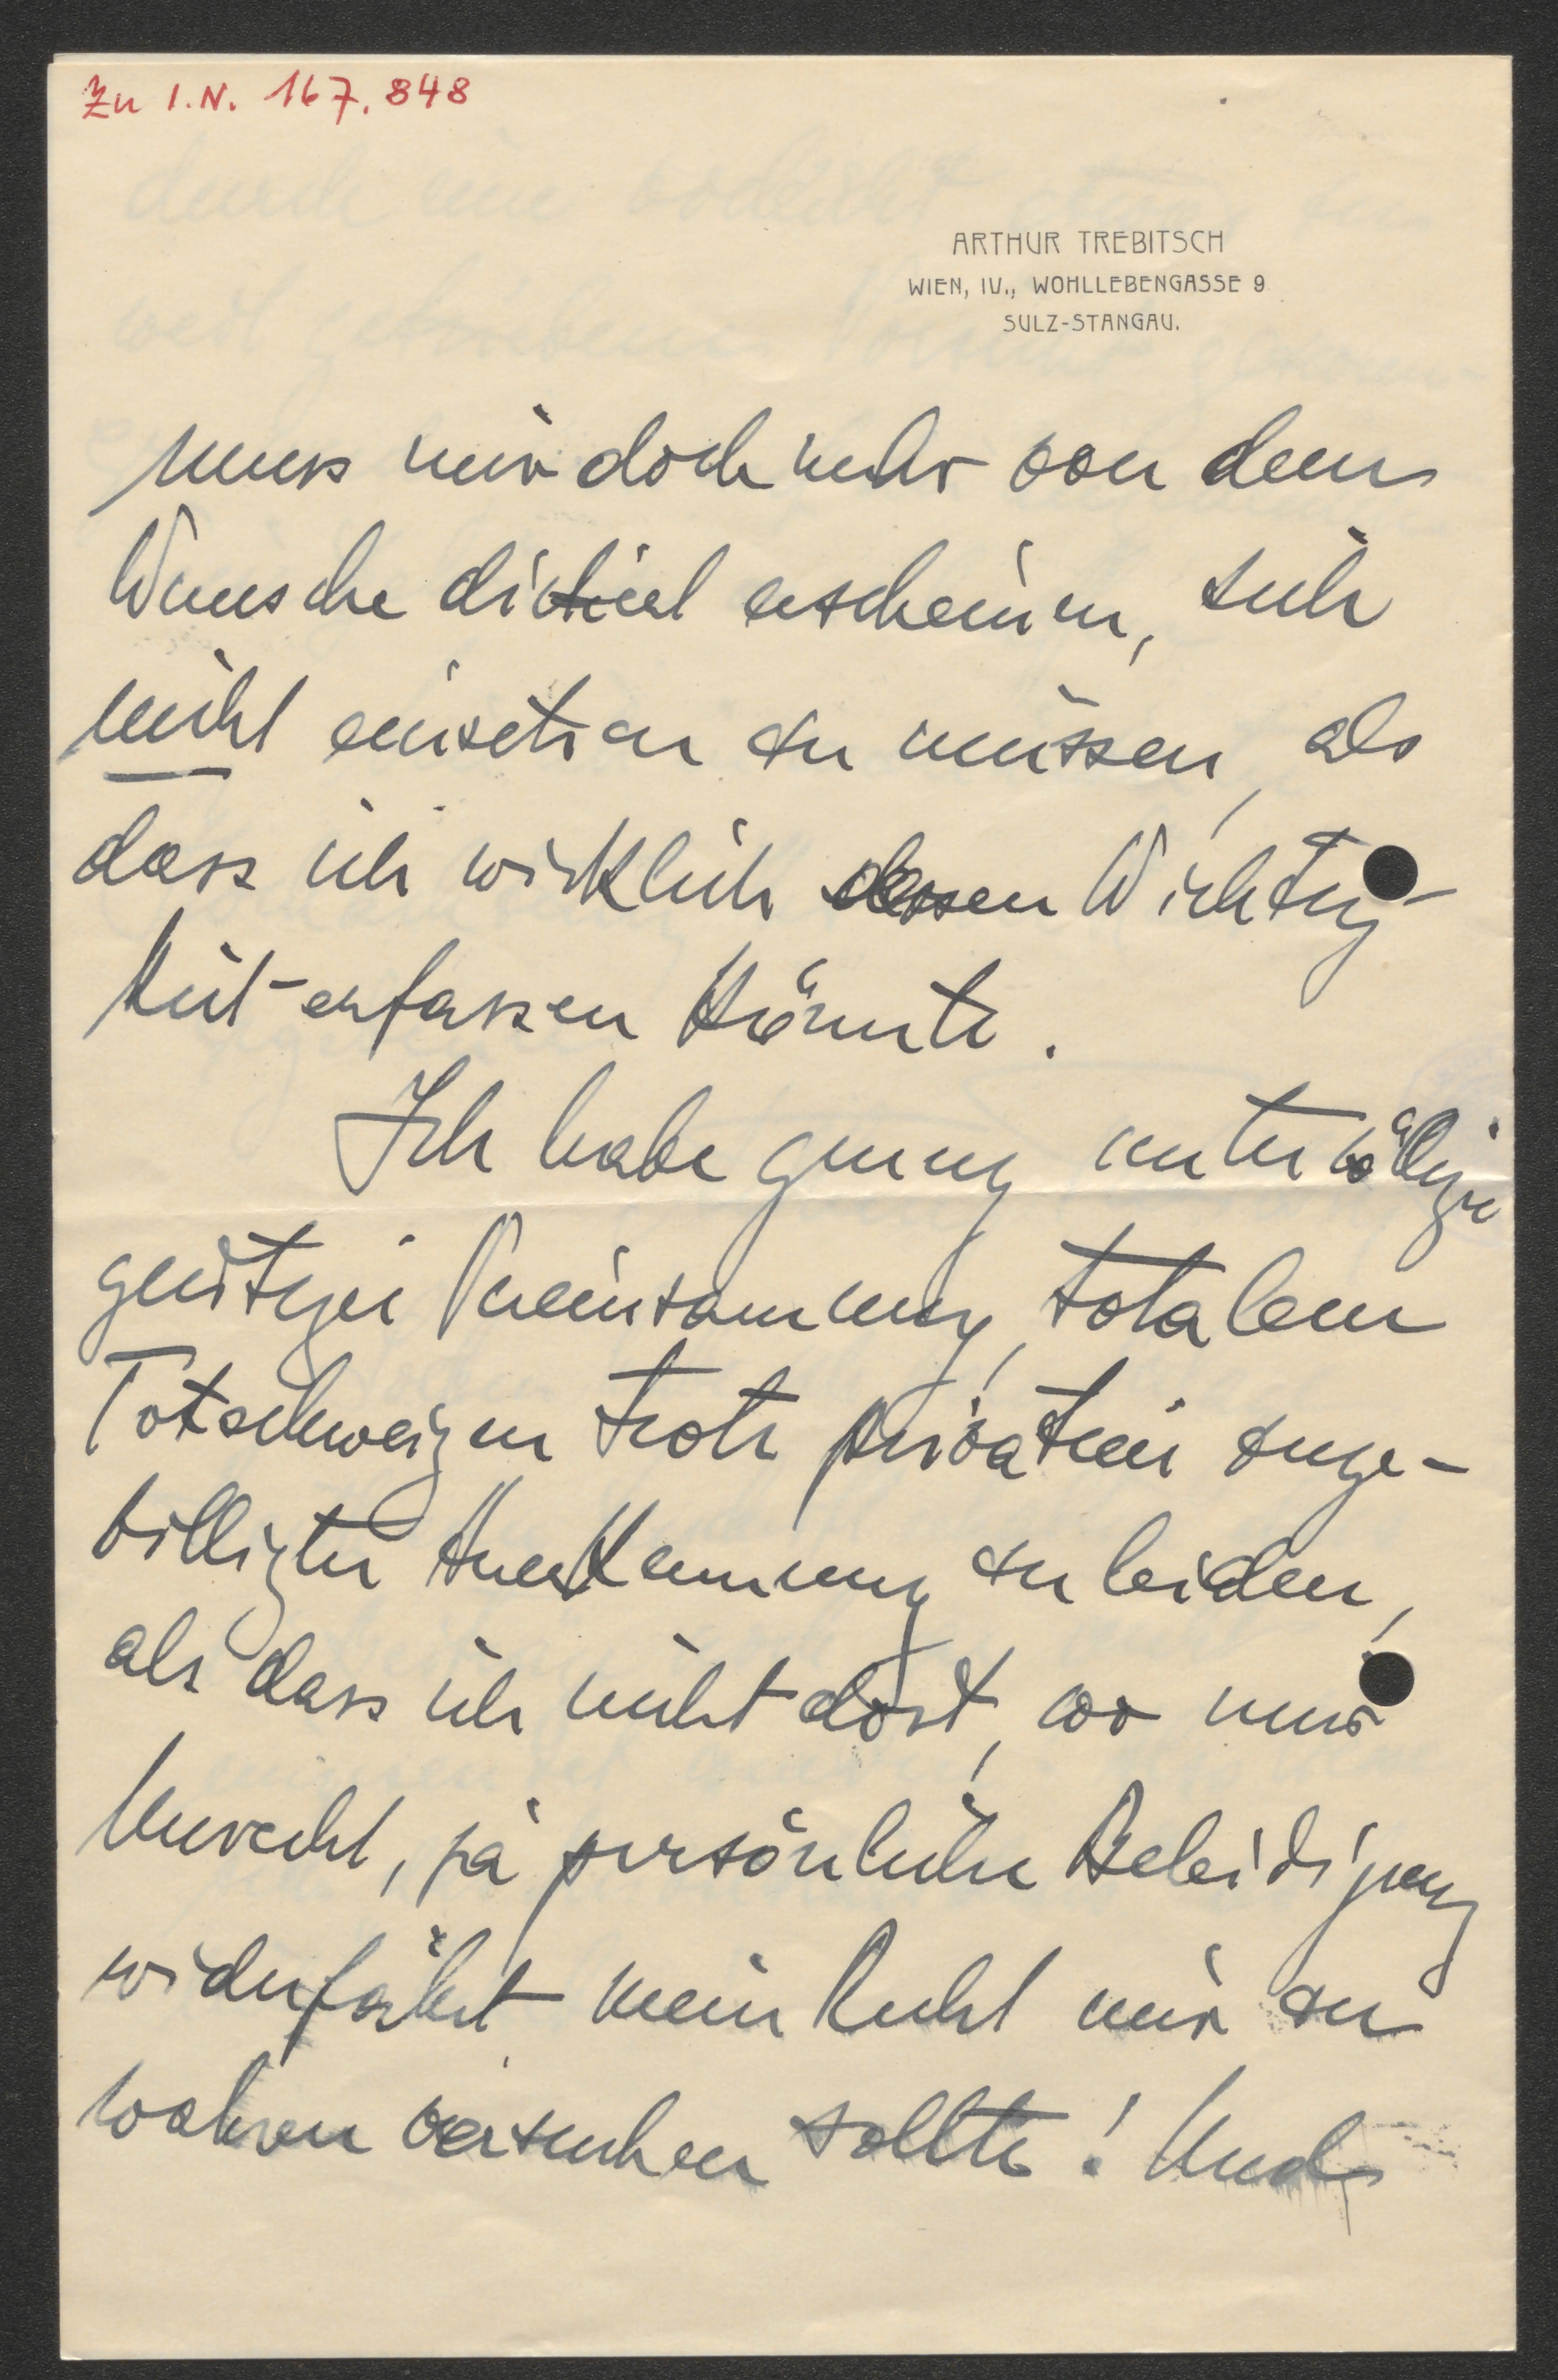 Zu I.N. 167.848
ARTHUR TREBITSCH
WIEN, IV., WOHLLEBENGASSE 9
SULZ-STANGAU.
muss mir doch mehr von dem
Wunsche dictiert erscheinen, sich
nicht einsetzen zu müssen, als
dass ich wirklich dessen Wichtig-
keit erfassen könnte.
Ich habe genug unter völliger
geistiger Vereinsamung, totalem
Totschweigen trotz privatim zuge-
billigter Anerkennung zu leiden,
als dass ich nicht dort, wo mir
Unrecht, ja persönliche Beleidigung
widerfährt mein Recht mir zu
wahren versuchen sollte! Und